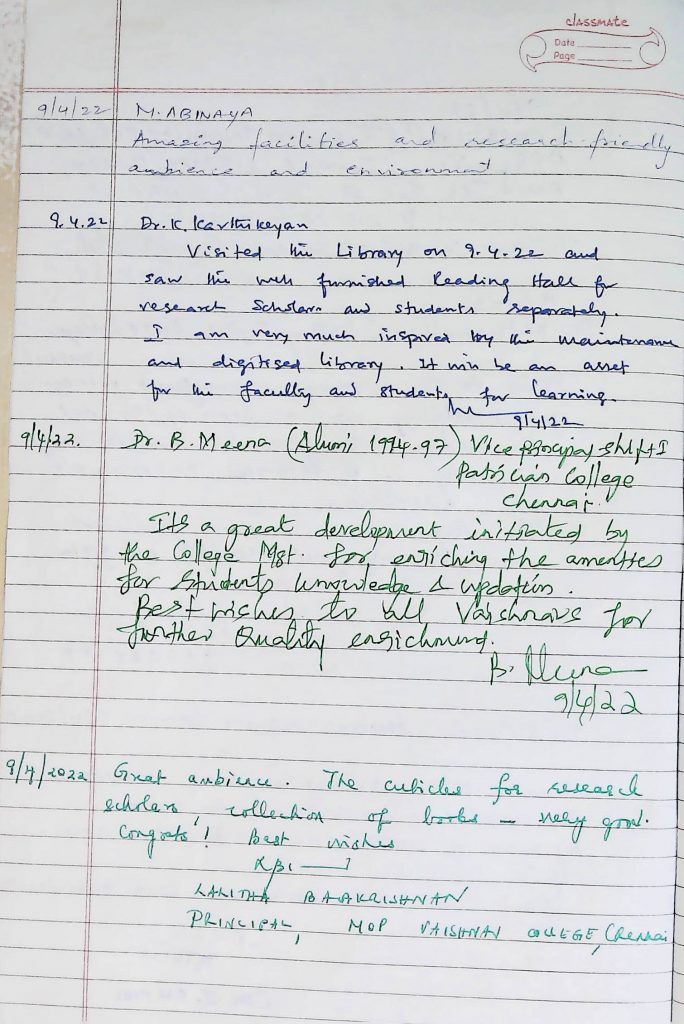 classmate
Date
Page
9/4/22 M. ABINAYA
Amazing facilities and research-friendly
ambience and environment.
9.4.22 Dr. K. Karthikeyan
Visited the Library on 9.4.22 and
saw the well furnished Reading Hall for
research Scholars and students separately.
I am very much inspired by the maintenance
and digitised library. It will be an asset
for the faculty and students for learning.
9/4/22
9/4/22. Dr. B. Meena (Alumi, 1994-97) Vice principal shift I
Patrician College
Chennai.
Its a great development initiated by
the College Mgt. for enriching the amenties
for Students knowledge & updation.
Best wishes to all Vaishnavs for
further Quality enrichment.
B. Meena
9/4/22
9/4/2022 Great ambience. The cubicles for research
scholars, collection of books - very good.
Congrats! Best wishes
LALITHA BALAKRISHNAN
PRINCIPAL, MOP VAISHNAV COLLEGE, Chennai